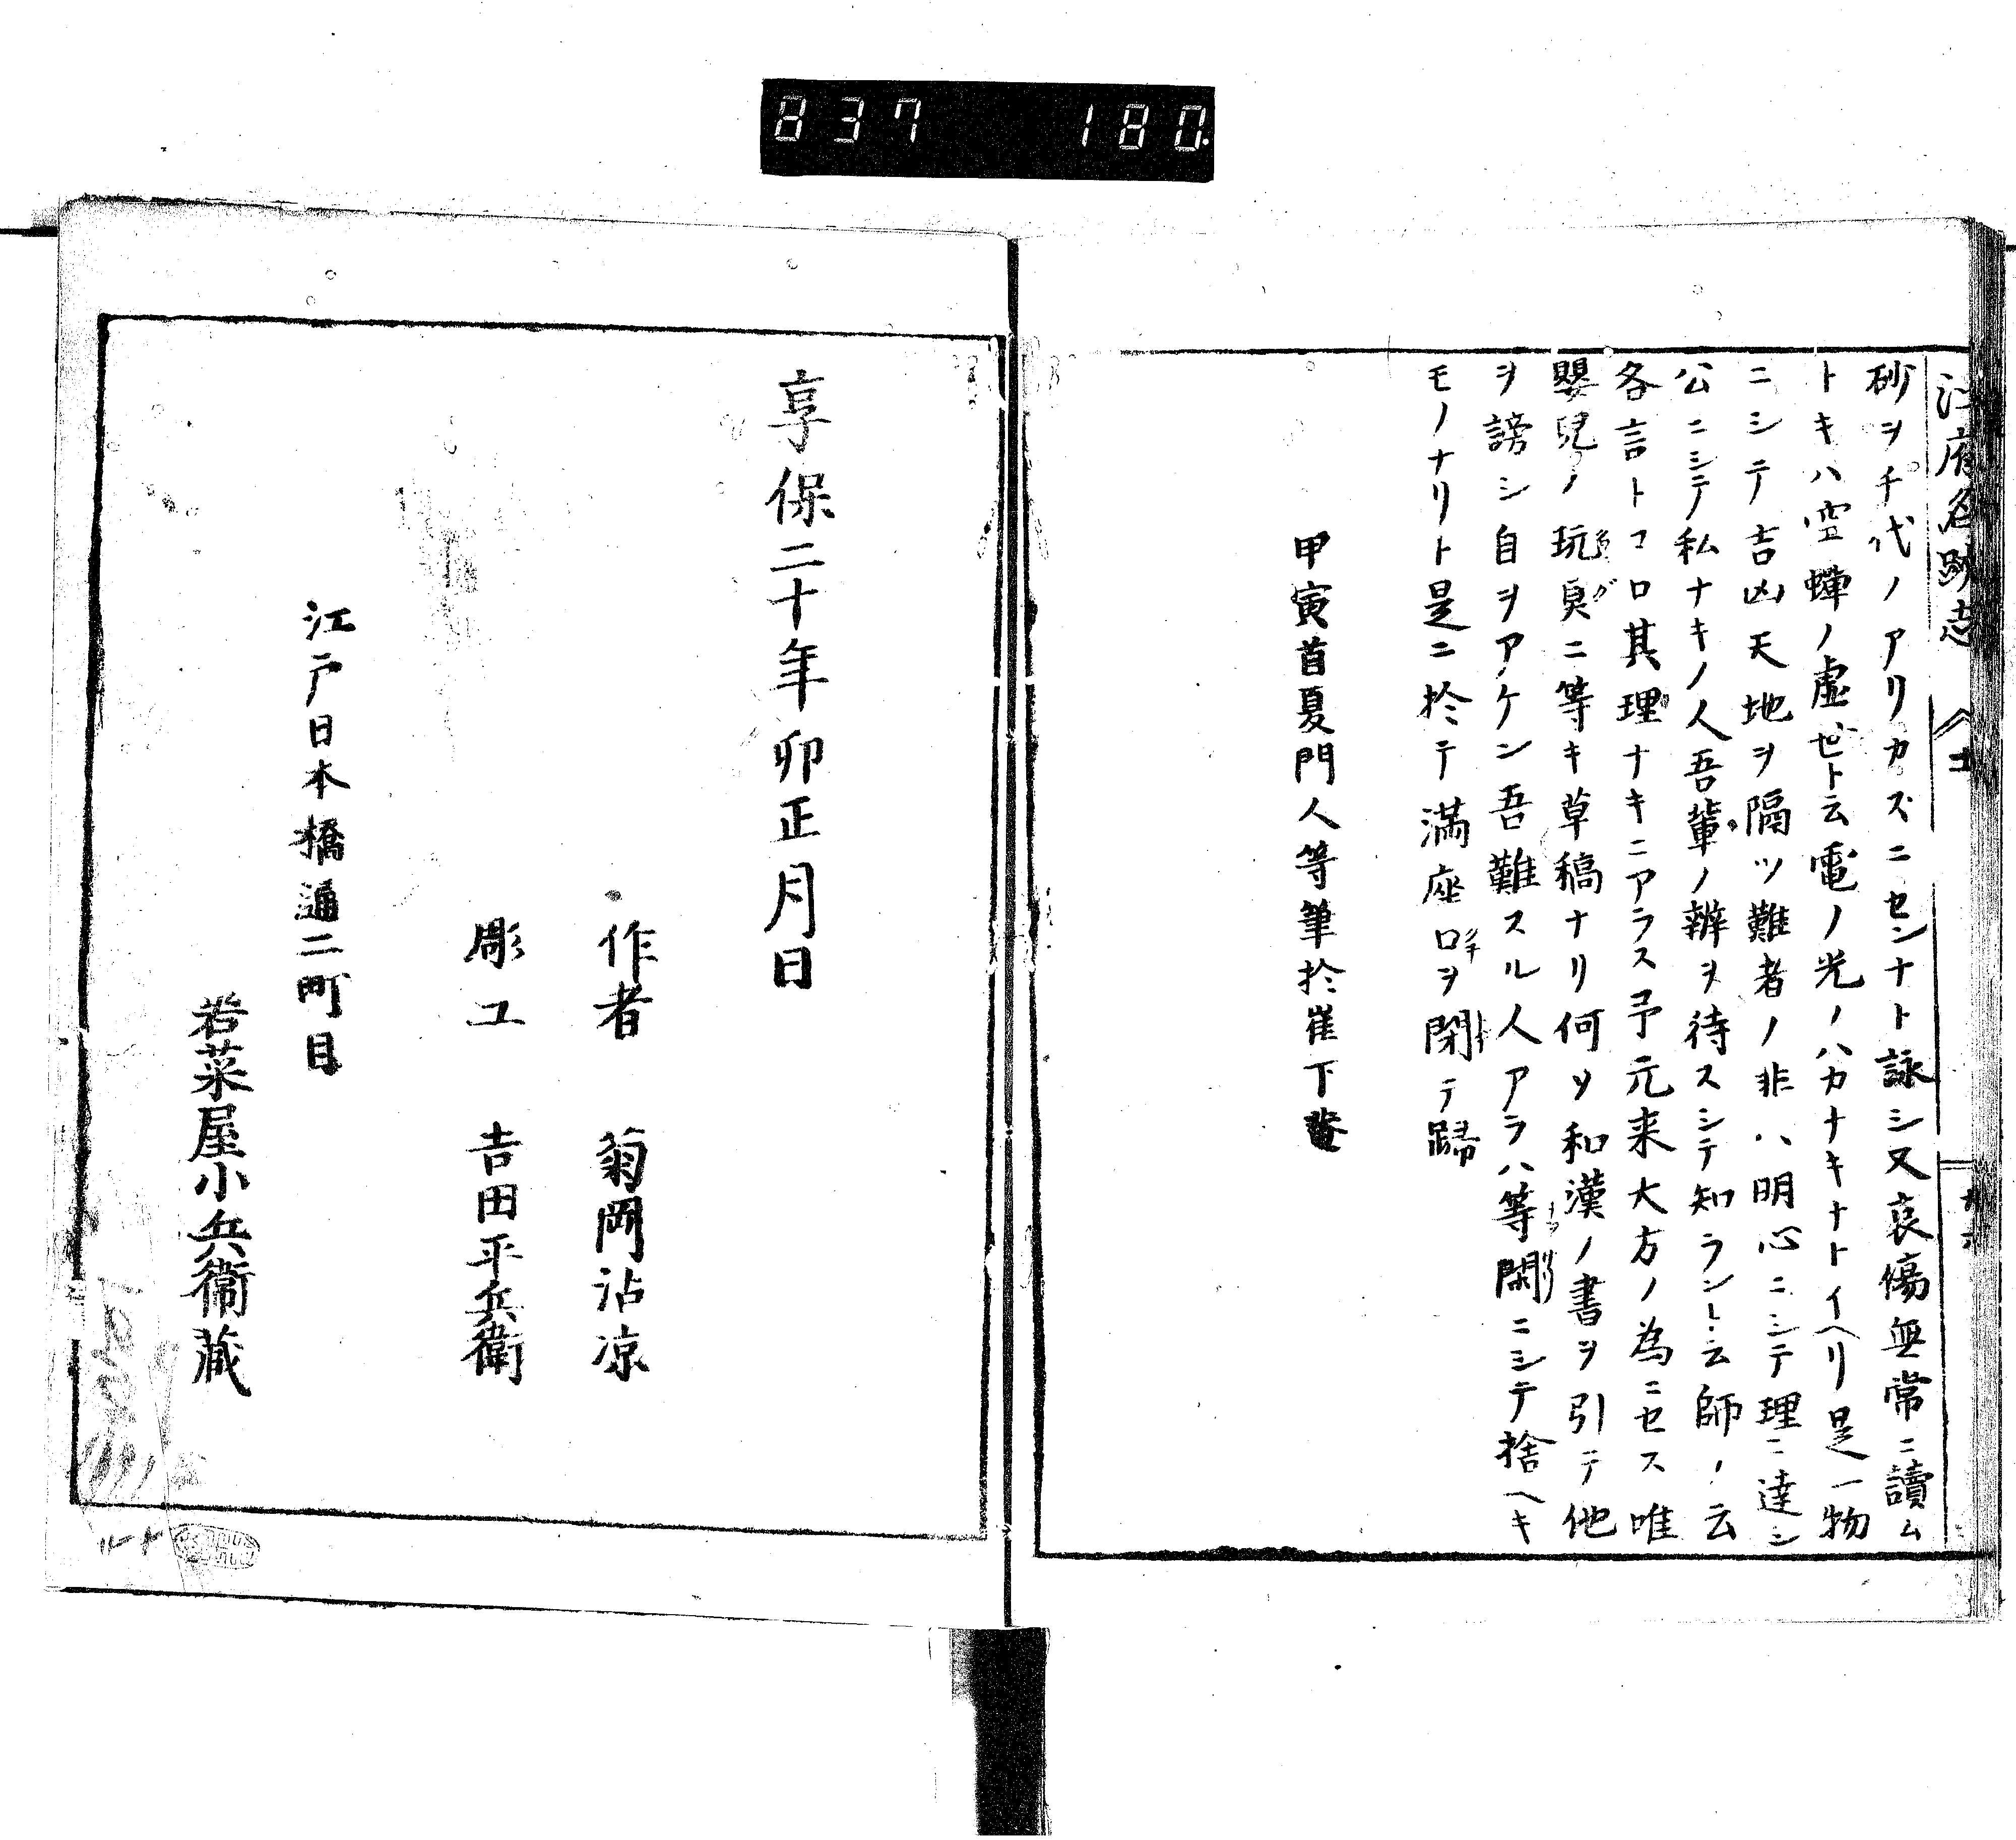 837 180
江府名跡志
砂ヲチ代ノアリカズニセンナト詠シ又哀傷無常ニ讀ム
トキハ空蟬ノ虚世ト云電ノ光ノハカナキナトイヘリ是一物
ニシテ吉凶天地ヲ隔ツ難者ノ非ハ明心ニシテ理ニ達シ
公ニシテ私ナキノ人吾輩ノ辨ヲ待スシテ知ラント云師ノ云
各言トコロ其理ナキニアラス予元来大方ノ為ニセス唯
嬰兒ノ玩具ニ等キ草稿ナリ何ソ和漢ノ書ヲ引テ他
ヲ謗シ自ヲアケン吾難スル人アラハ等閑ニシテ捨ヘキ
モノナリト是ニ於テ満座口ヲ閉テ歸
甲寅首夏門人等筆於崔下菴
享保二十年卯正月日
作者 菊岡沾凉
彫工 吉田平兵衛
江戸日本橋通二町目
若菜屋小兵衛蔵